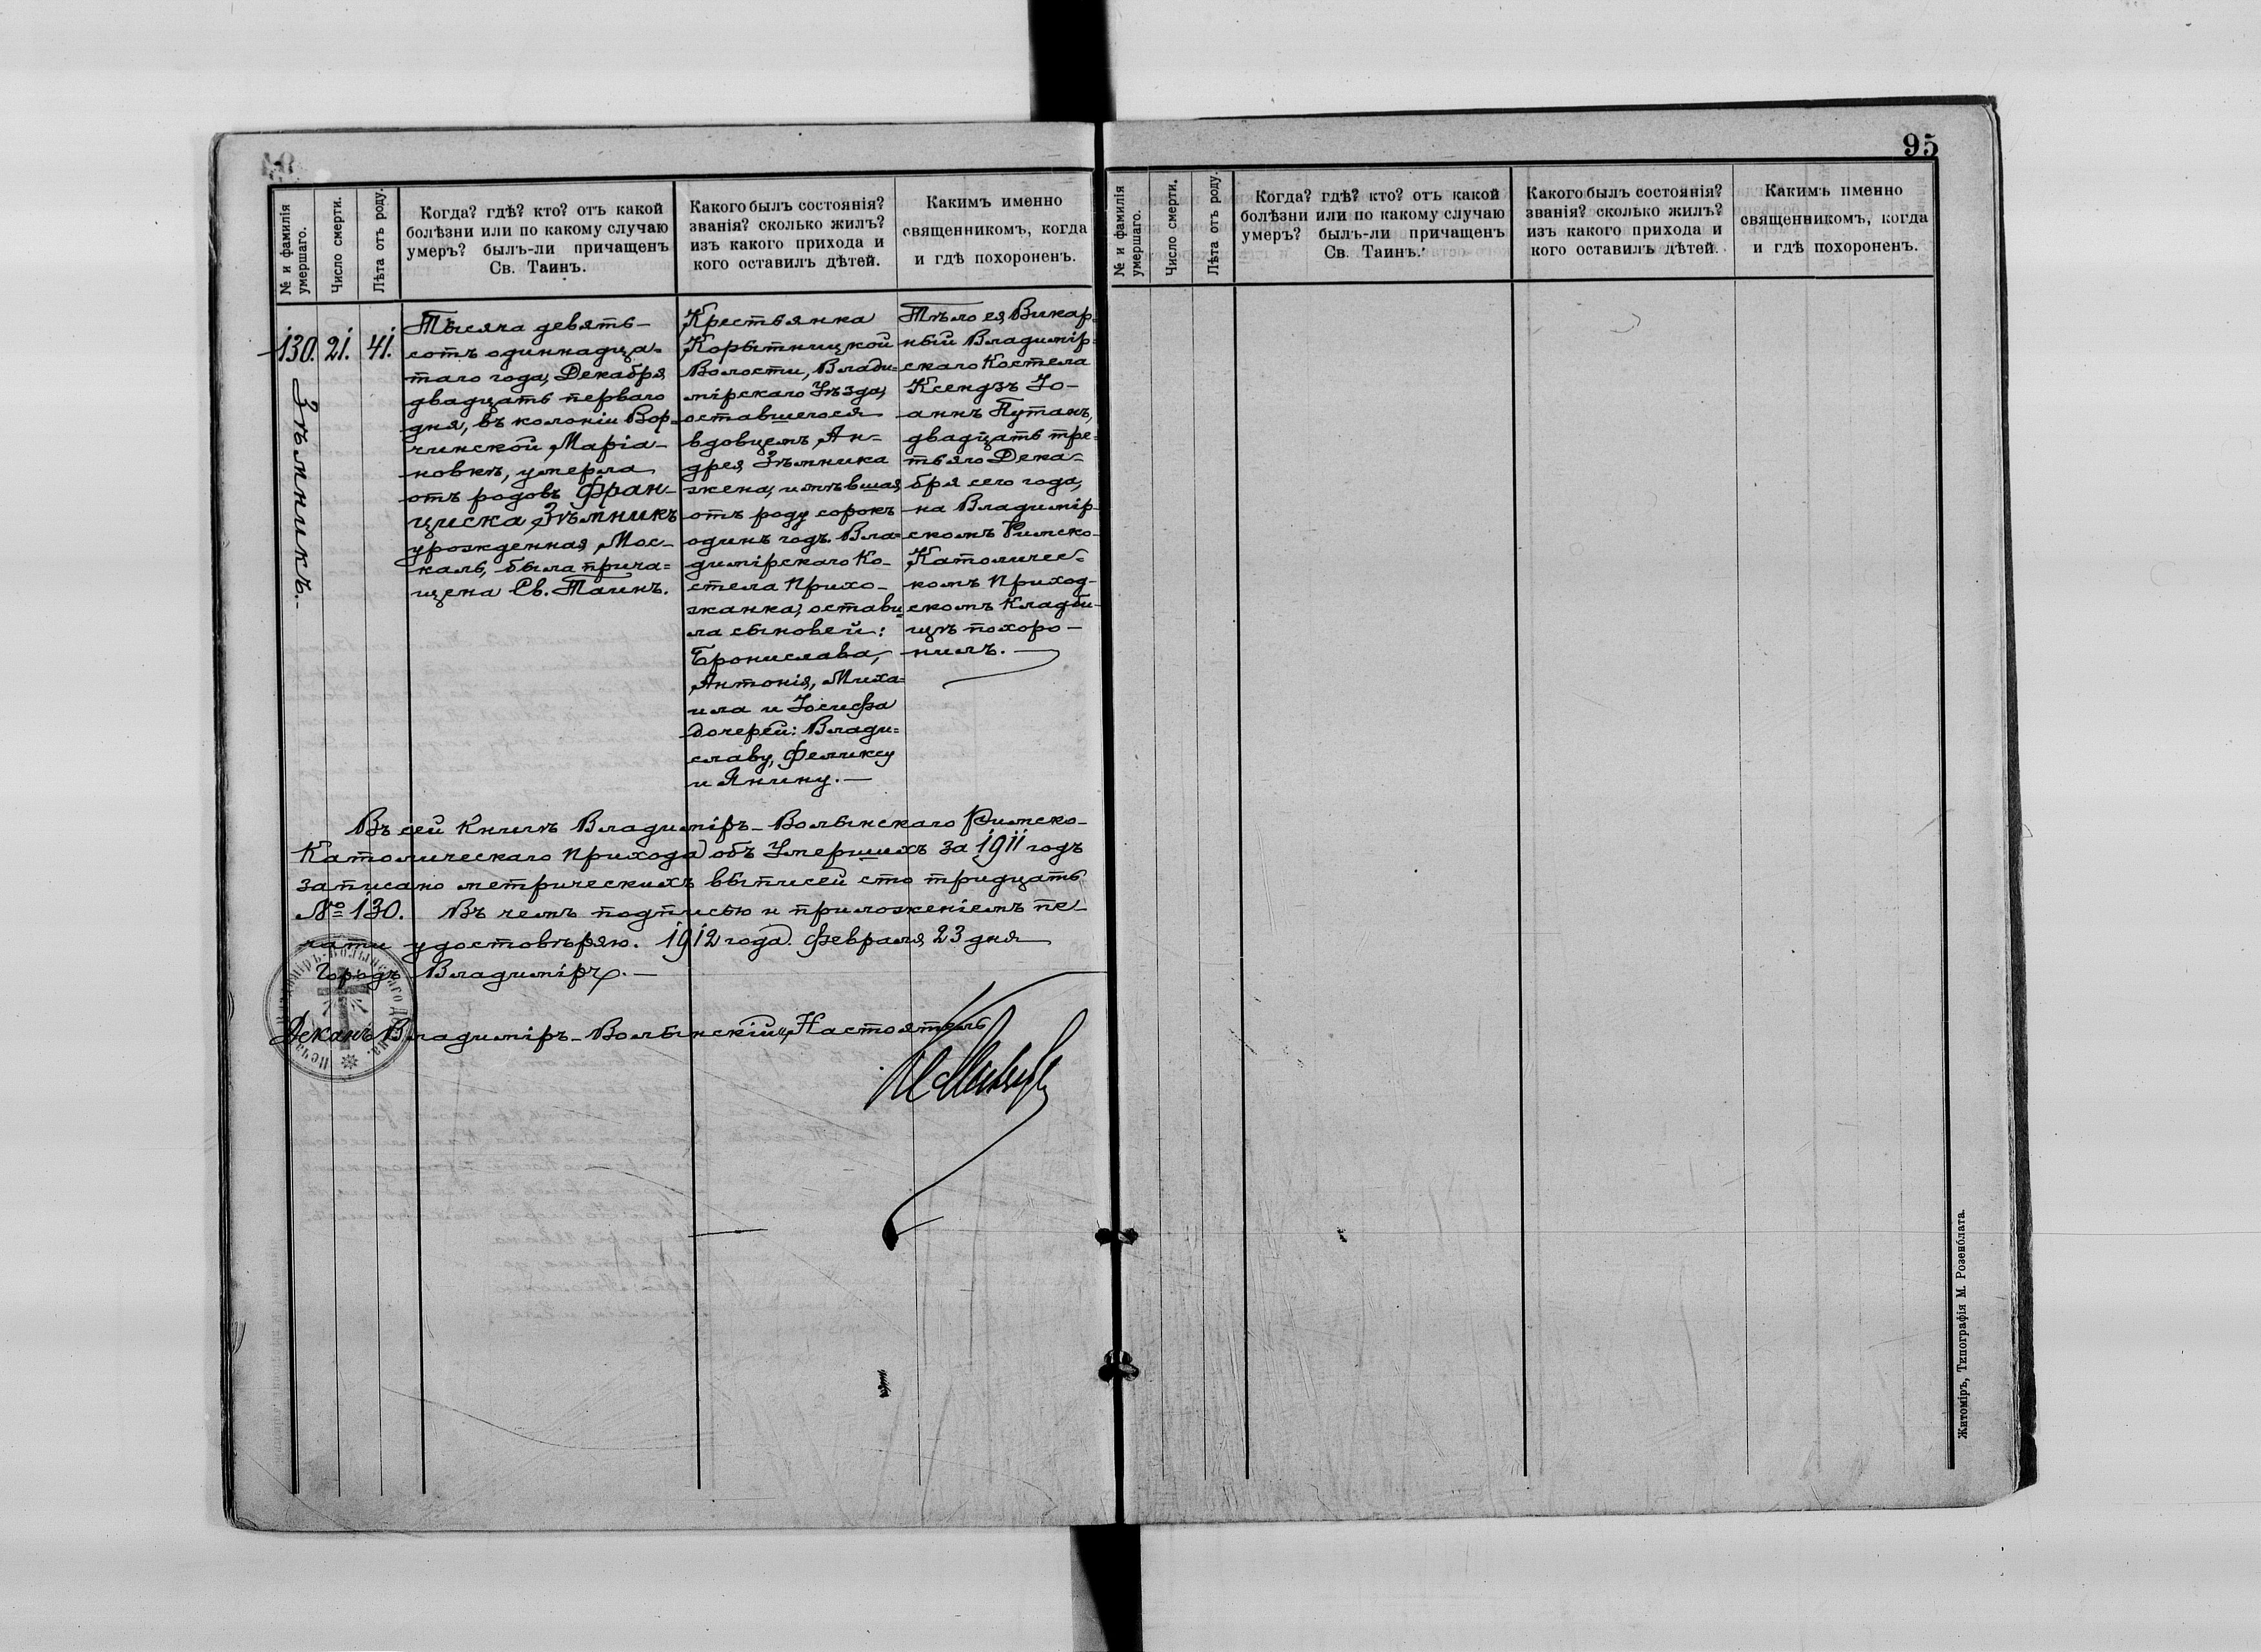 95
№ и фамилія
умершаго.
Число смерти.
Лѣта отъ роду.
Когда? гдѣ? кто? отъ какой
болѣзни или по какому случаю
умеръ? былъ-ли причащенъ
Св. Таинъ.
Какого былъ состоянія?
званія? сколько жилъ?
изъ какого прихода и
кого оставилъ дѣтей.
Какимъ именно
священникомъ, когда
и гдѣ похороненъ.
130.
Зѣмникъ.
21.
41.
Тысяча девять-
сотъ одиннадца-
таго года, Декабря
двадцать перваго
дня, въ колоніи Вор-
чинской Маріа-
новкѣ, умерла
отъ родовъ Фран-
циска Зѣмникъ
урожденная Мос-
каль, была прича-
щена Св. Таинъ.
Крестьянка
Корытницкой
Волости, Влади-
мірскаго Уѣзда,
оставшегося
вдовцемъ Ан-
дрея Зѣмника
жена, имѣвшая
отъ роду сорокъ
одинъ годъ. Вла-
димірскаго Ко-
стела Прихо-
жанка, остави-
ла сыновей:
Бронислава,
Антонія, Миха-
ила и Іосифа
дочерей: Влади-
славу, Феликсу
и Янину.
Тѣло ея Викар-
ный Владимір-
скаго Костела
Ксендзъ Іо-
аннъ Путанъ,
двадцать тре-
тьяго Дека-
бря сего года,
на Владимір-
скомъ Римско-
Католичес-
комъ Приход-
скомъ Кладби-
щѣ похоро-
нилъ.
Въ сей Книгѣ Владиміръ-Волынскаго Римско-
Католическаго Прихода объ Умершихъ за 1911 годъ
записано метрическихъ выписей сто тридцать
№ 130. Въ чемъ подписью и приложеніемъ пе-
чати удостовѣряю. 1912 года. Февраля 23 дня
Городъ Владиміръ.
Деканъ Владиміръ-Волынскій, Настоятель
№ и фамилія
умершаго.
Число смерти.
Лѣта отъ роду.
Когда? гдѣ? кто? отъ какой
болѣзни или по какому случаю
умеръ? былъ-ли причащенъ
Св. Таинъ.
Какого былъ состоянія?
званія? сколько жилъ?
изъ какого прихода и
кого оставилъ дѣтей.
Какимъ именно
священникомъ, когда
и гдѣ похороненъ.
Житоміръ, Типографія М. Розенблата.